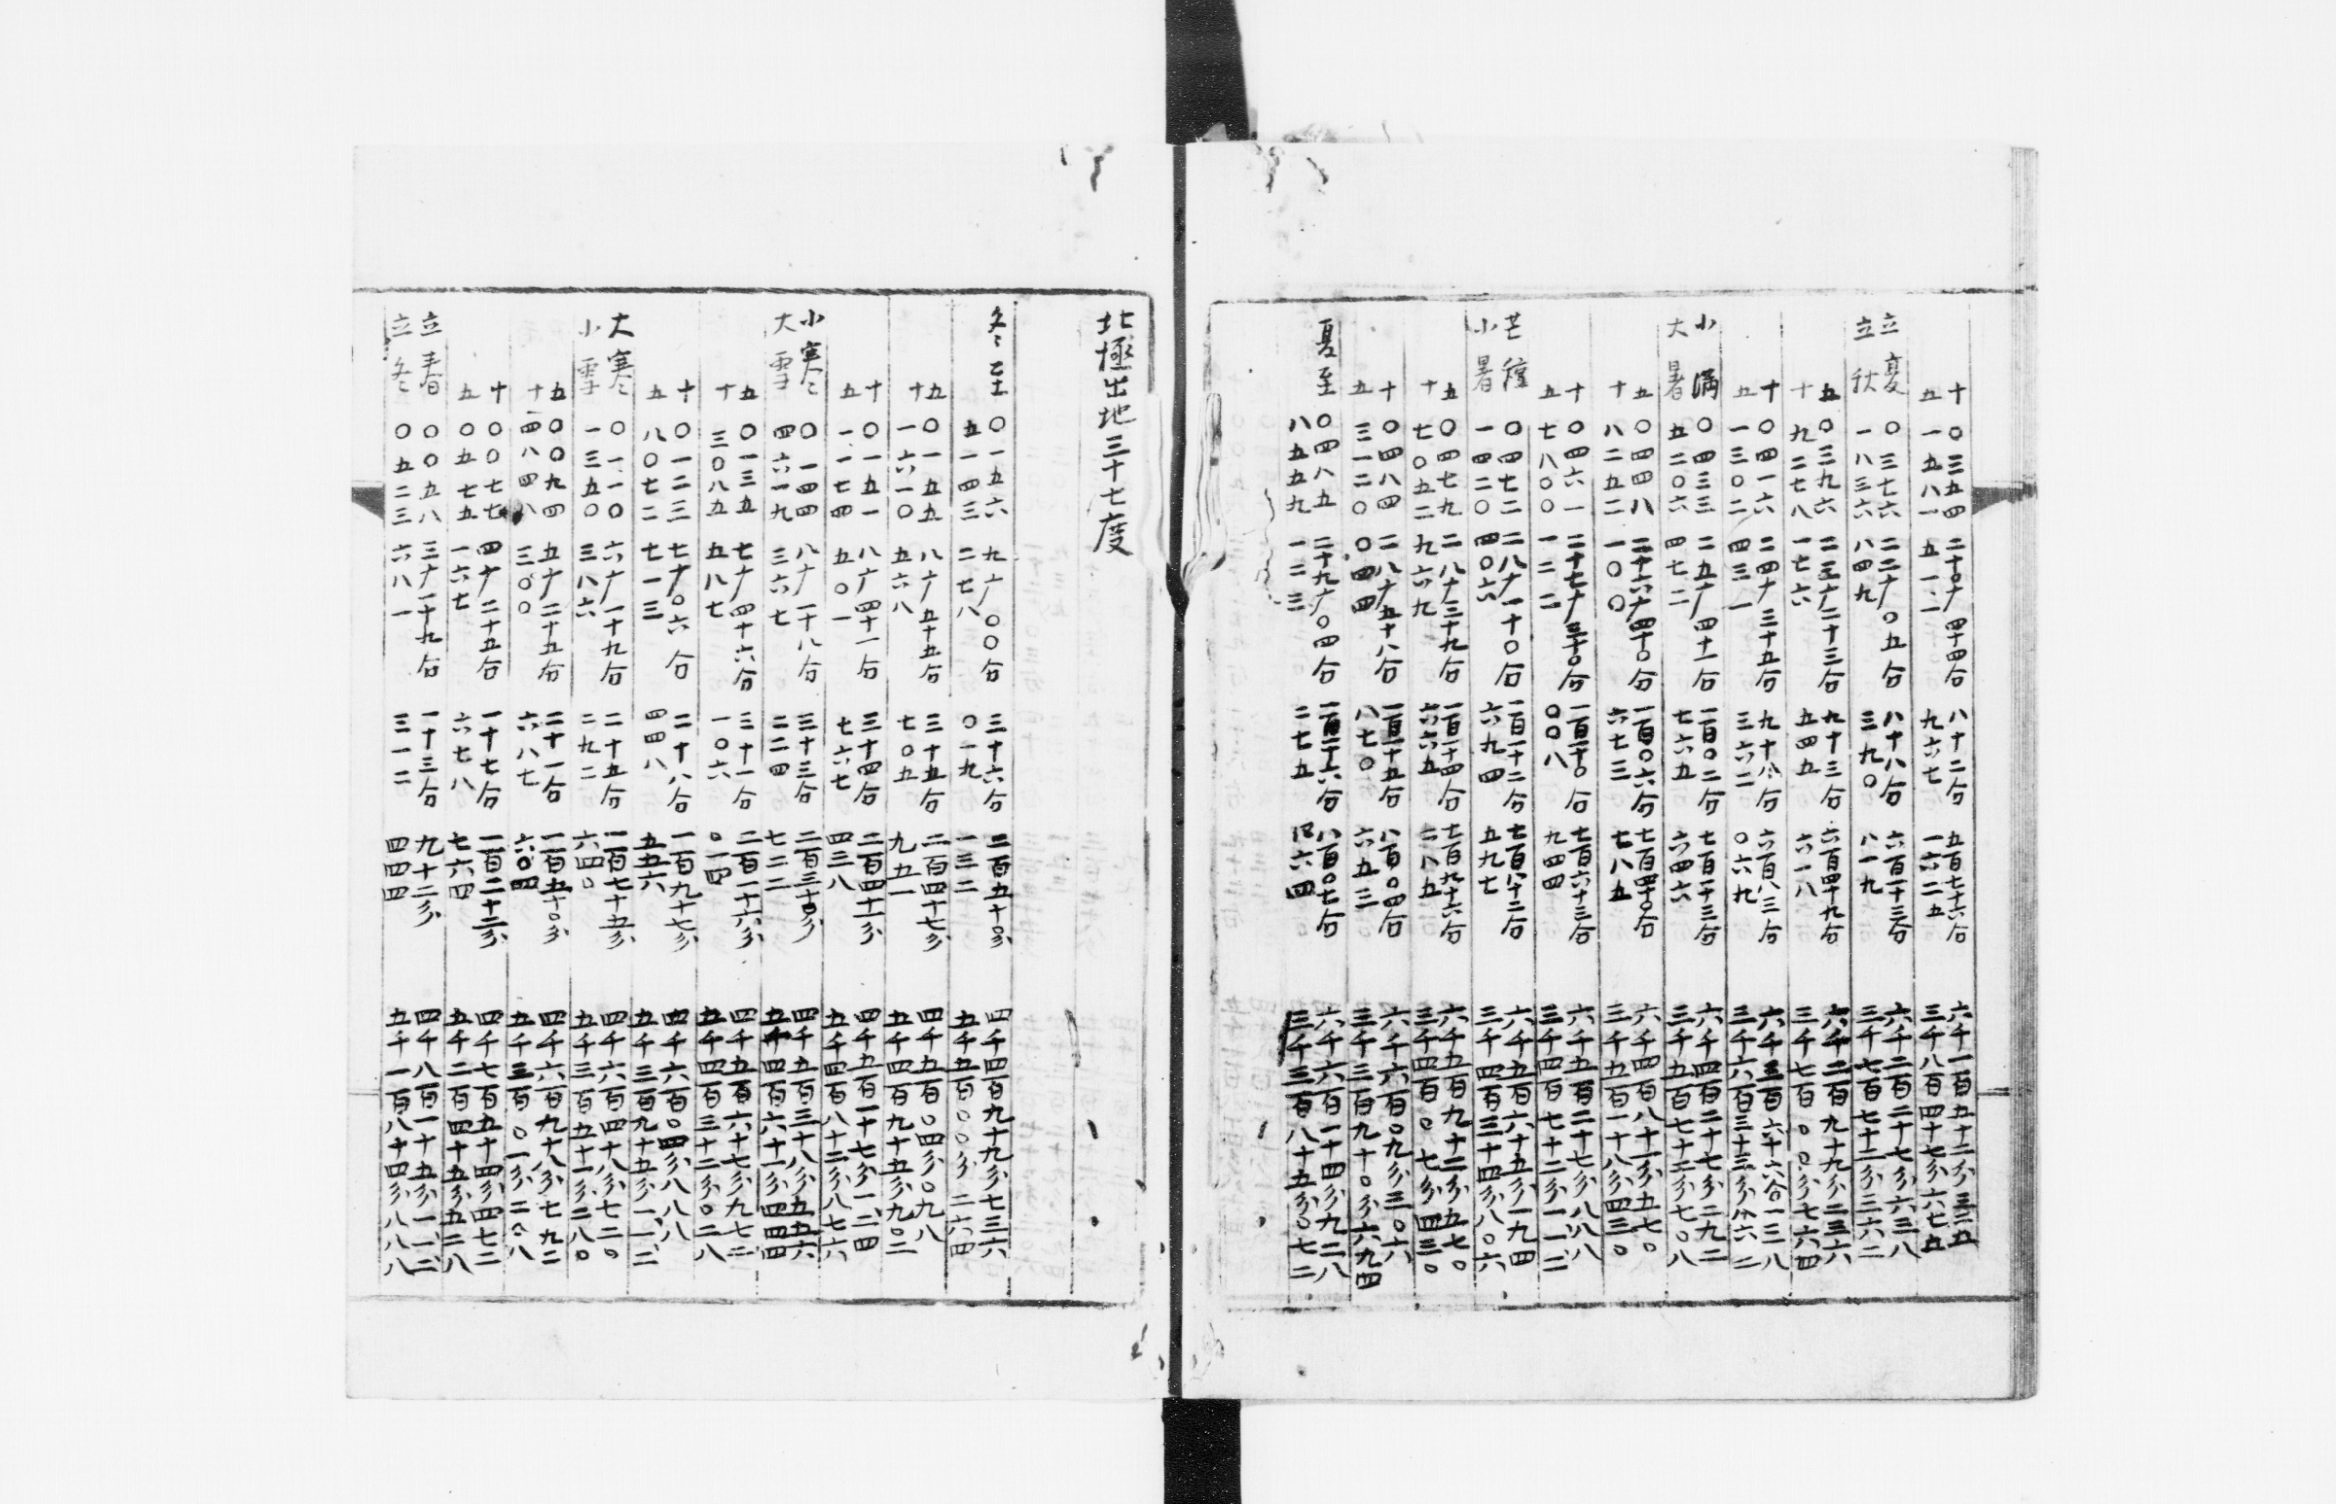 十 〇三五四 二十〇广四十四分 八十二分 五百七十六分 六千一百五十二分三二五
五 一五八一 五一一 九六七 一六二五 三千八百四十七分六七五
立夏 〇三七六 二二十广〇五分 八十八分 六百二十三分 六千二百二十七分六三八
立秋 一八三六 八四九 三九〇 八一九 三千七百七十二分三六二
五 〇三九六 二三十广二十三分 九十三分 六百四十九分 六千二百九十九分二三六
十 九二七八 一七六 五四五 六一八 三千七百〇〇分七六四
十 〇四一六 二四十广三十五分 九十八分 六百八三分 六千三百六十六分一三八
五 一三〇二 四三一 三六二 〇六九 三千六百三十三分八六二
小満 〇四三三 二五十广四十一分 一百〇二分 七百一十三分 六千四百二十七分二九二
大暑 五二〇六 四七二 七六五 六四六 三千五百七十二分七〇八
五 〇四四八 二十六广四十〇分 一百〇六分 七百四十〇分 六千四百八十一分五七〇
十 八二五二 一〇〇 六七三 七八五 三千五百一十八分四三〇
十 〇四六一 二十七广三十〇分 一百一十〇分 七百六十三分 六千五百二十七分八八八
五 七八〇〇 一二二 〇〇八 九四四 三千四百七十二分一一二
芒種 〇四七二 二八十广一十〇分 一百一十二分 七百八十二分 六千五百六十五分一九四
小暑 一四二〇 四〇六 六九四 五九七 三千四百三十四分八〇六
五 〇四七九 二八十广三十九分 一百一十四分 七百九十六分 六千五百九十二分五七〇
十 七〇五二 九六九 六六五 二八五 三千四百〇七分四三〇
十 〇四八四 二八十广五十八分 一百一十五分 八百〇四分 六千六百〇九分三〇六
五 三一二〇 〇四四 八七〇 六五三 三千三百九十〇分六九四
夏至 〇四八五 二十九广〇四分 一百一十六分 八百〇七分 六千六百一十四分九二八
八五五九 一二三 二七五 四六四 三千三百八十五分〇七二
北極出地三十七度
冬至 〇一五六 九广〇〇分 三十六分 二百五十〇分 四千四百九十九分七三六
五一四三 二七八 〇一九 一三二 五千五百〇〇分二六四
五 〇一五五 八广五十五分 三十五分 二百四十七分 四千五百〇四分〇九八
十 一六一〇 五六八 七〇五 九五一 五千四百九十五分九〇二
十 〇一五一 八广四十一分 三十四分 二百四十一分 四千五百一十七分一二四
五 一一七四 五〇一 七六七 四三八 五千四百八十二分八七六
小寒 〇一四四 八广一十八分 三十三分 二百三十〇分 四千五百三十八分五五六
大雪 四六一九 三六七 二二四 七二二 五千四百六十一分四四四
五 〇一三五 七广四十六分 三十一分 二百一十六分 四千五百六十七分九七二
十 三〇八五 五八七 一〇六 〇一四 五千四百三十二分〇二八
十 〇一二三 七广〇六分 二十八分 一百九十七分 四千六百〇四分八八八
五 八〇七二 七一三 四四八 五五六 五千三百九十五分一一二
大寒 〇一一〇 六广一十九分 二十五分 一百七十五分 四千六百四十八分七二〇
小雪 一三五〇 三八六 二九二 六四〇 五千三百五十一分二八〇
五 〇〇九四 五广二十五分 二十一分 一百五十〇分 四千六百九十八分七九二
十 一四八四 三〇〇 六八七 六〇四 五千三百〇一分二〇八
十 〇〇七七 四广二十五分 一十七分 一百二十二分 四千七百五十四分四七二
五 〇五七五 一六七 六七八 七六四 五千二百四十五分五二八
立春 〇〇五八 三广一十九分 一十三分 九十二分 四千八百一十五分一一二
立冬 〇五二三 六八一 三一二 四四四 五千一百八十四分八八八